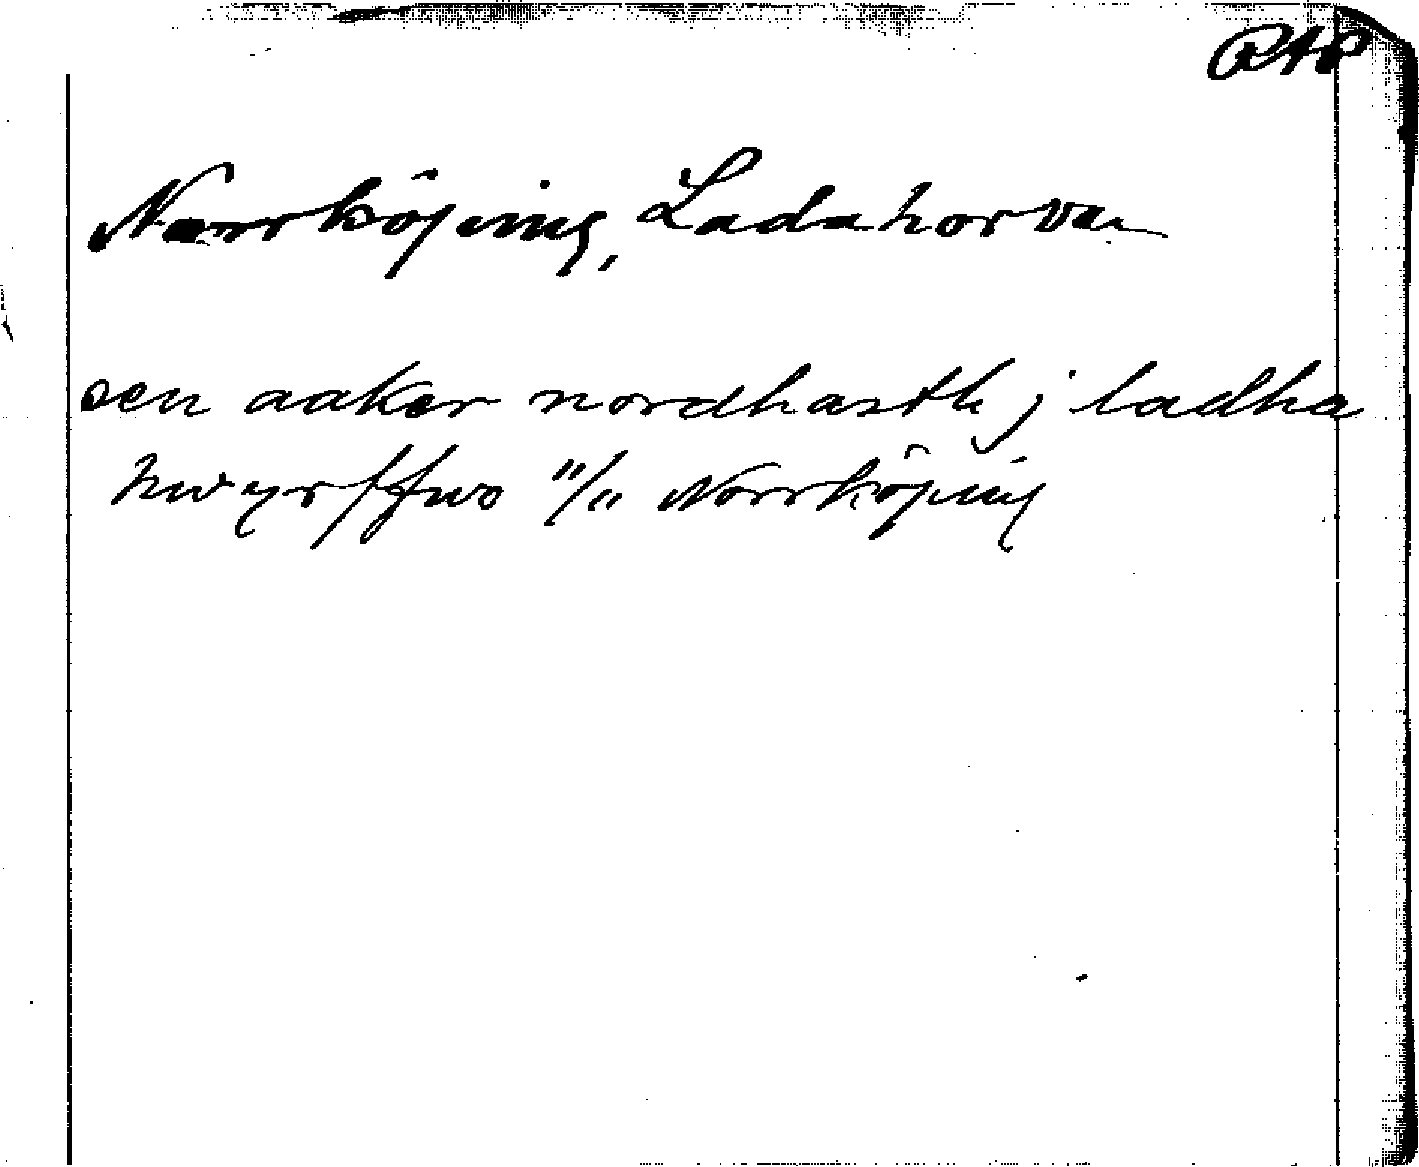 RAP
Norrköping, Ladahorvan
oen aaker nordhasth j ladha
hwyrffwo "/" Norrköping